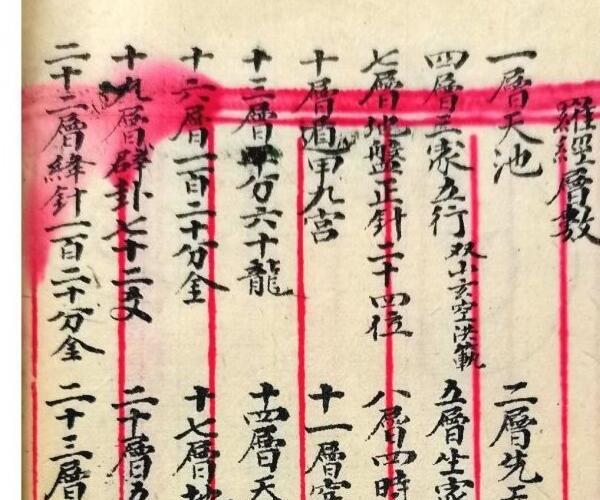 羅經層數
一層天池 二層先
四層三家五行 双山玄空洪範 五層
七層地盤正針二十四位 八層四時
十層遁甲九宮 十一層
十三層平分六十龍 十四層天
十六層一百二十分金 十七層地
十九層辟卦七十二爻 二十層五
二十二層針一百二十分金 二十三層